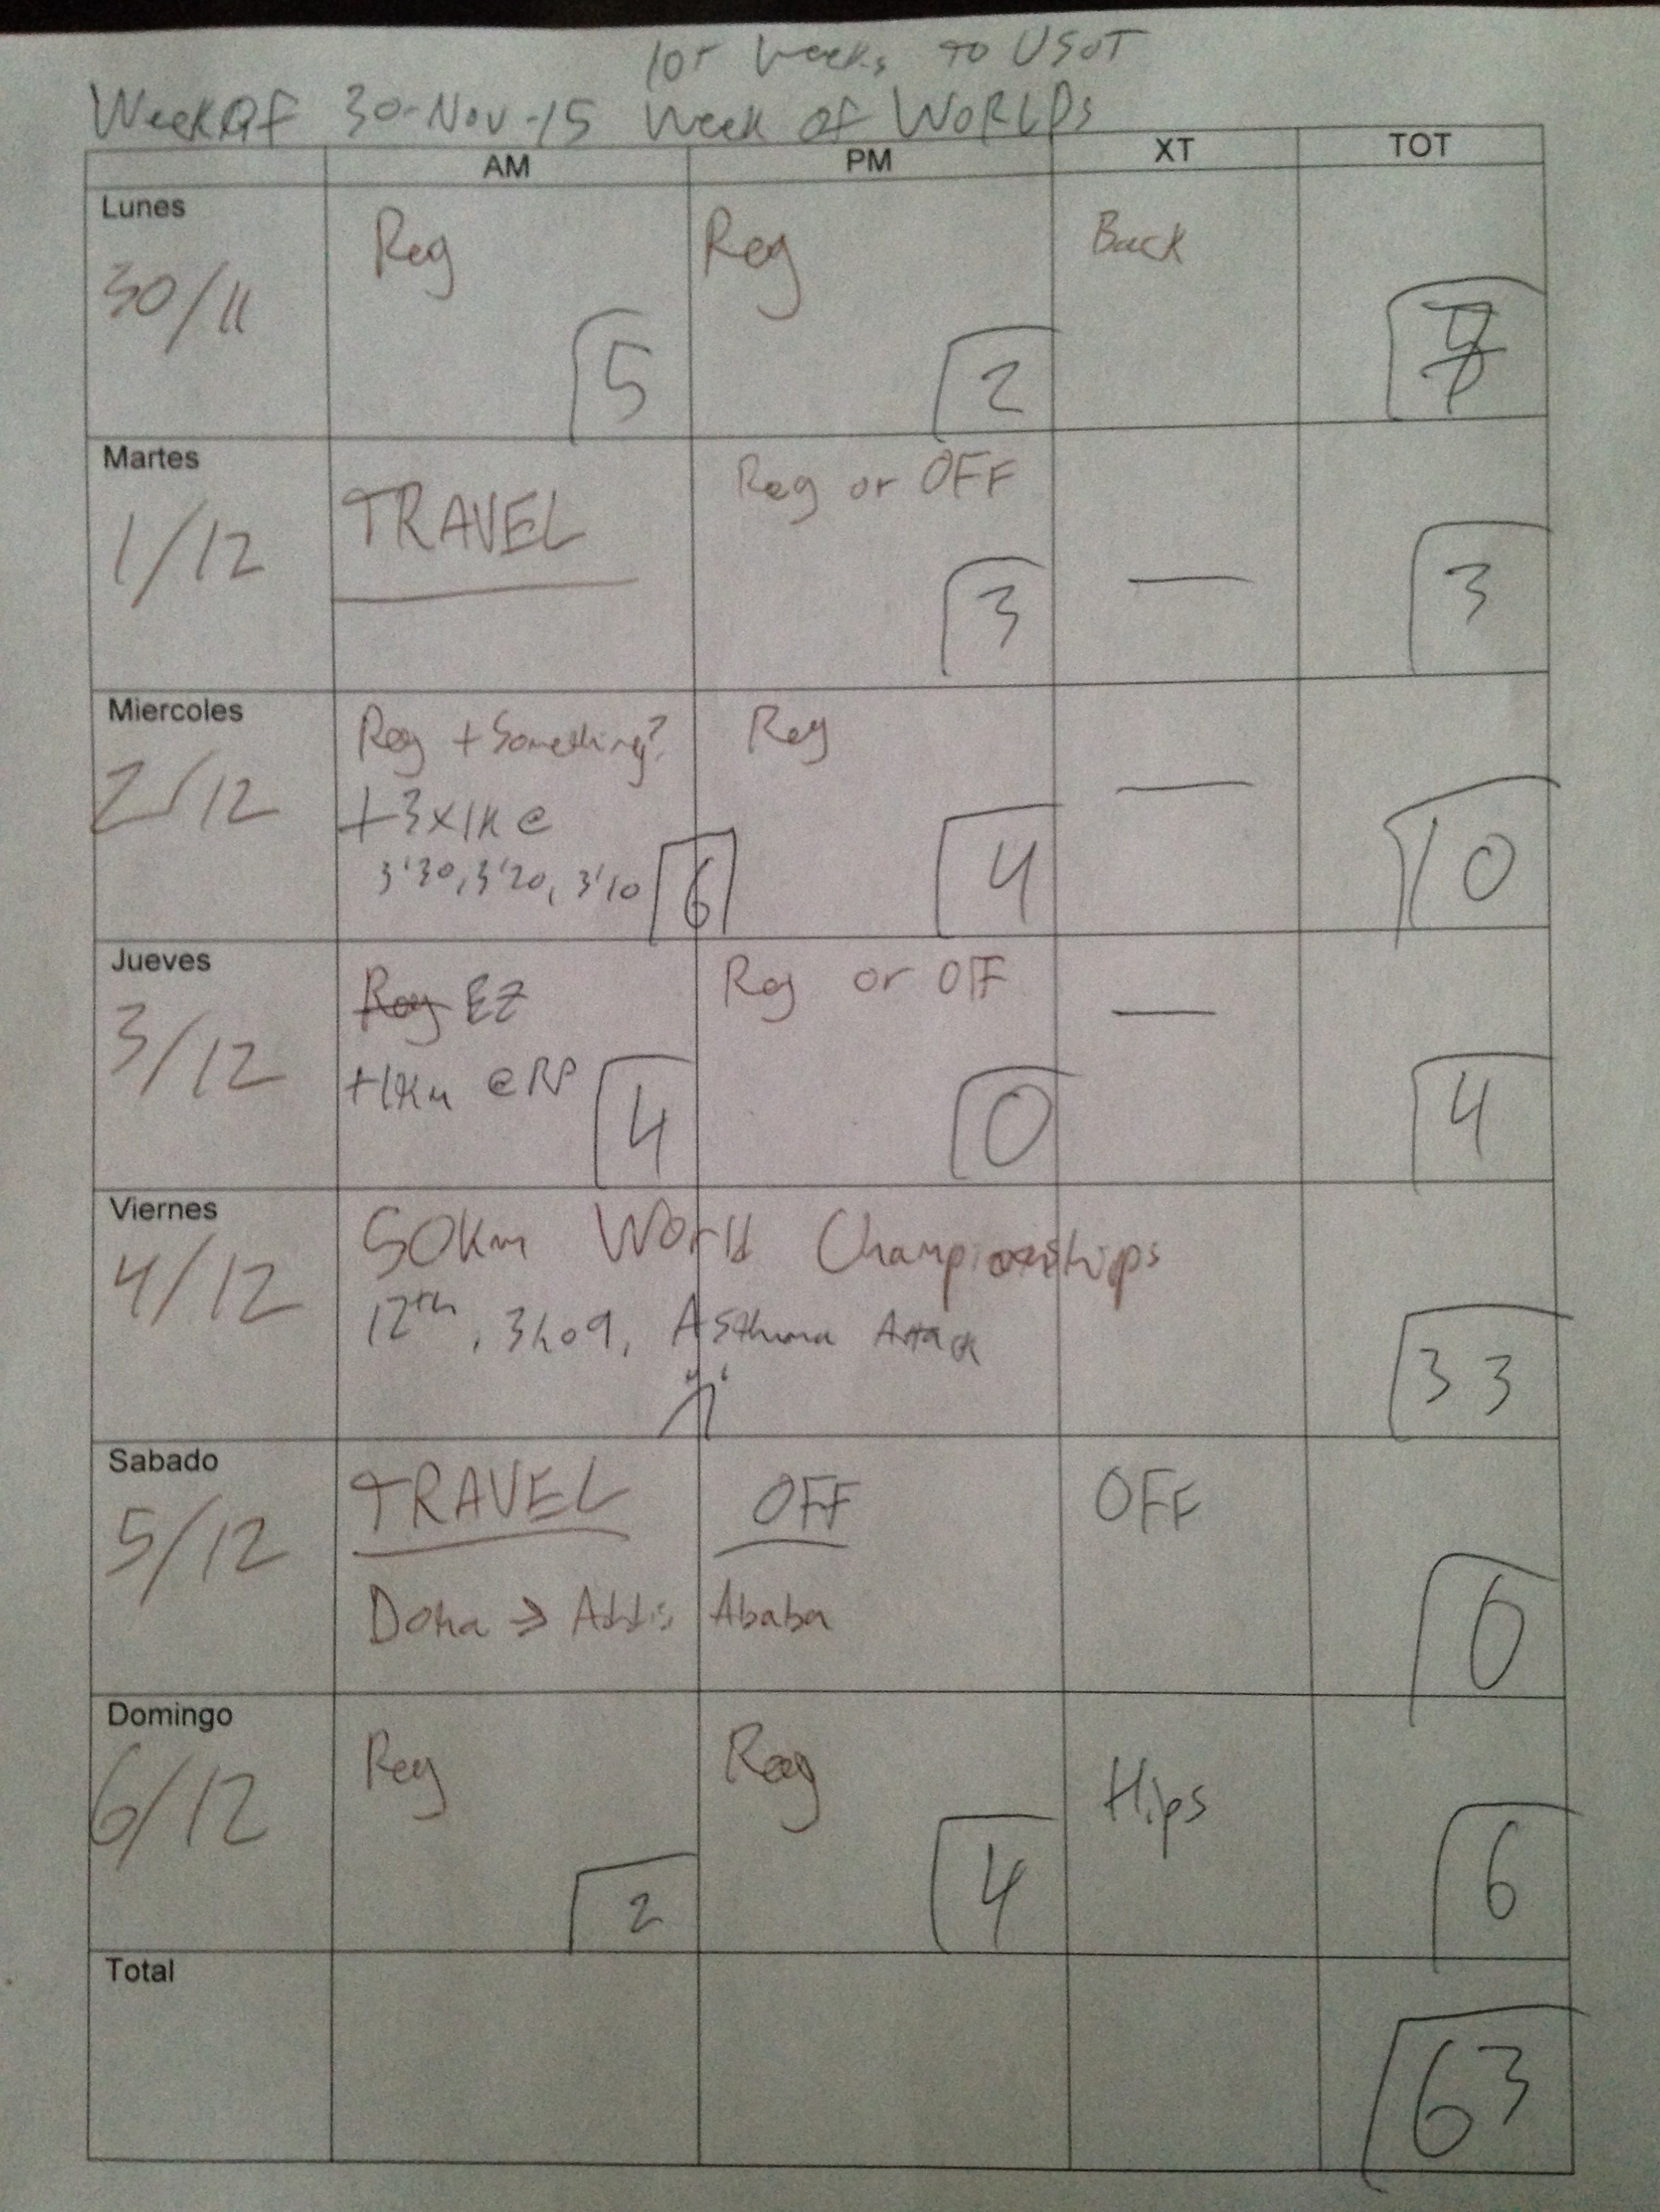 10+ weeks to USOT
Week of 30-Nov-15 Week of WORLDs
AM PM XT TOT
Lunes
30/11
Reg
5
Reg
2
Back
7
Martes
1/12
TRAVEL
Reg or OFF
3
—
3
Miercoles
2/12
Reg + Something?
+3x1K @
3'30, 3'20, 3'10
6
Reg
4
—
10
Jueves
3/12
Reg EZ
+1Km @ RP
4
Reg or OFF
0
—
4
Viernes
4/12
50Km World Championships
12th, 3h09, Asthma Attack
33
Sabado
5/12
TRAVEL
OFF
OFF
Doha ⇒ Addis Ababa
0
Domingo
6/12
Reg
2
Reg
4
Hips
6
Total
63